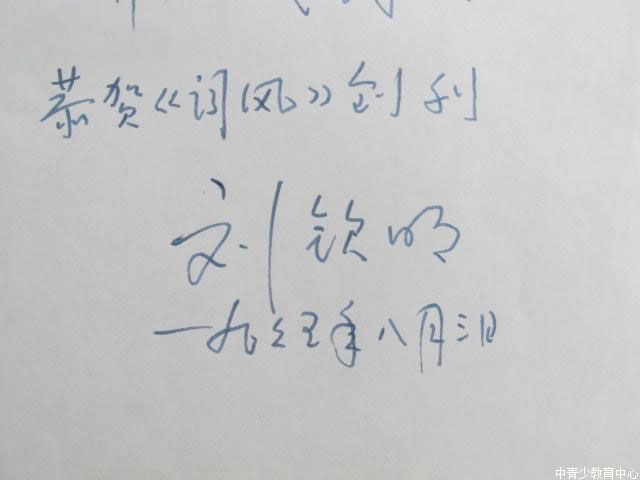 恭贺《词风》创刊
刘钦明
一九九五年八月三日
中青少教育中心